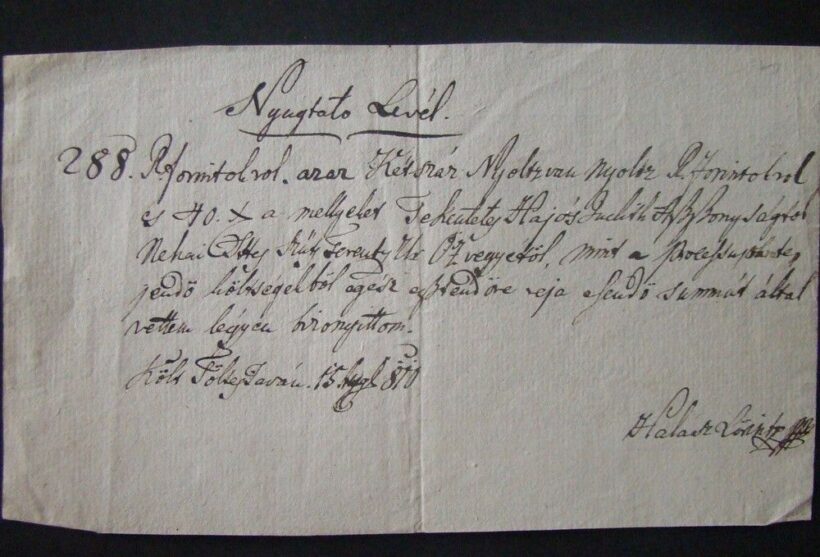 Nyugtato Levél.
288. Rforintokrol. azaz Kétszáz Nyoltzvan nyoltz Rforintokrol
es 40. X a mellyeket Tekintetes Hajós Judith Aszszonyságtol
Nehai Ferentz Ur Özvegyétöl, mint a
jendö költségekböl egész esztendöre reja esendö summát által
vettem légyen bizonyittom.
Költ 15 810
Halasz Lörintz